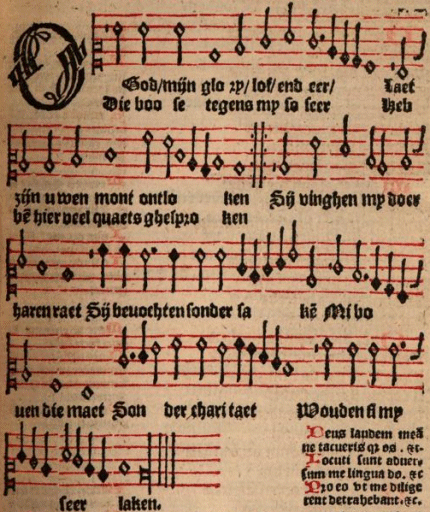 O God/mijn glo ry/ lof/ end eer/ Laet
Die boo se tegens my so seer Heb
zijn u wen mont ontlo ken Sij vinghen my doer
bē hier veel quaets ghespro ken
haren raet Sij beuochten sonder sa kē Mi bo
uen die maet Son der chari taet Wouden si my
seer laken.
Deus laudem meā
ne tacueris qꝫ os . &c.
Locuti sunt aduer
sum me lingua do. &c
Pro eo vt me dilige
rent detrahebant. &c.